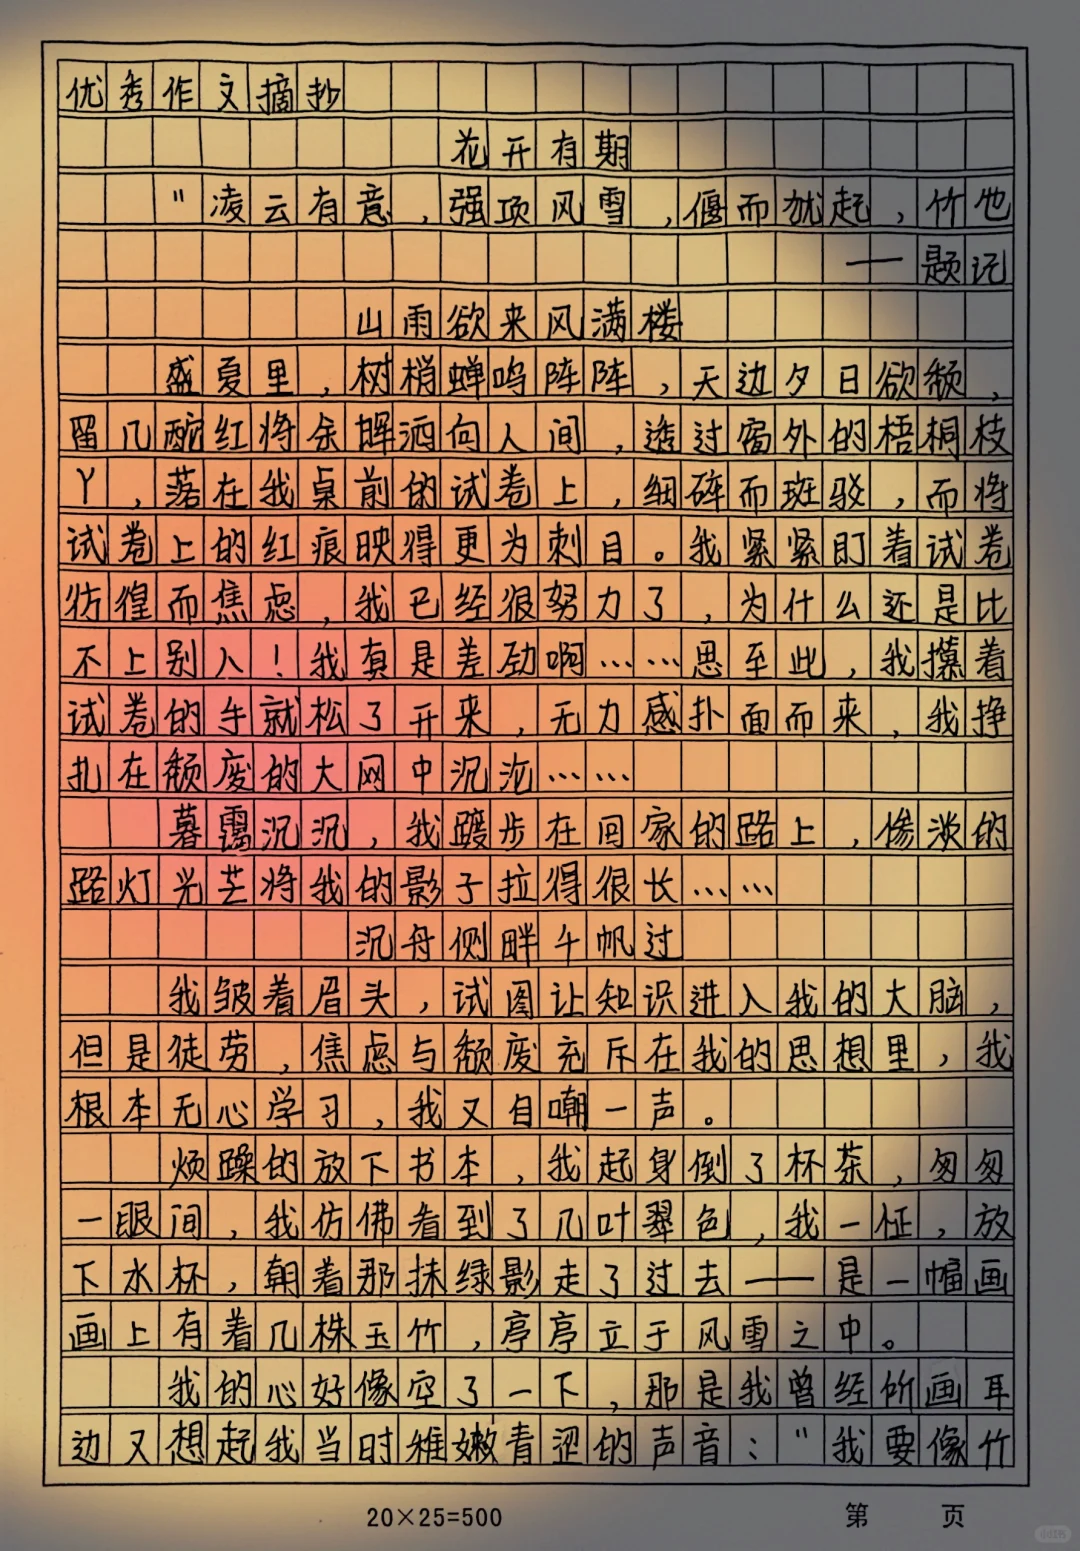 优秀作文摘抄
花开有期
"凌云有意，强项风雪，偃而犹起，竹也
——题记
山雨欲来风满楼
盛夏里，树梢蝉鸣阵阵，天边夕日欲颓，
留几酡红将余晖洒向人间，透过窗外的梧桐枝
丫，落在我桌前的试卷上，细碎而斑驳，而将
试卷上的红痕映得更为刺目。我紧紧盯着试卷
彷徨而焦虑，我已经很努力了，为什么还是比
不上别人！我真是差劲啊……思至此，我攥着
试卷的手就松了开来，无力感扑面而来，我挣
扎在颓废的大网中沉沦……
暮霭沉沉，我踱步在回家的路上，惨淡的
路灯光芒将我的影子拉得很长……
沉舟侧畔千帆过
我皱着眉头，试图让知识进入我的大脑，
但是徒劳，焦虑与颓废充斥在我的思想里，我
根本无心学习，我又自嘲一声。
烦躁的放下书本，我起身倒了杯茶，匆匆
一眼间，我仿佛看到了几叶翠色，我一怔，放
下水杯，朝着那抹绿影走了过去——是一幅画
画上有着几株玉竹，亭亭立于风雪之中。
我的心好像空了一下，那是我曾经所画耳
边又想起我当时稚嫩青涩的声音："我要像竹
20×25=500
第 页